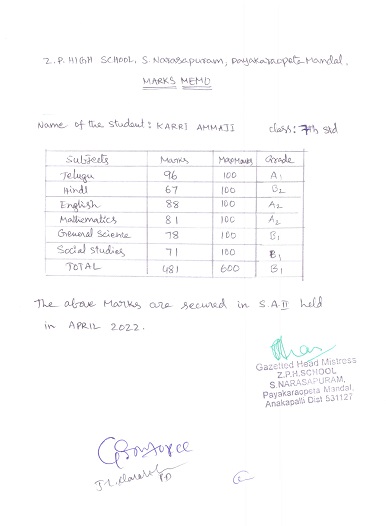 Z.P. HIGH SCHOOL, S. Narasapuram, Payakaraopeta Mandal.
MARKS MEMO
Name of the Student: KARRI AMMAJI class: 7th std
Subjects Marks MaxMarks Grade
Telugu 96 100 A1
Hindi 67 100 B2
English 88 100 A2
Mathematics 81 100 A2
General Science 78 100 B1
Social studies 71 100 B1
TOTAL 481 600 B1
The above Marks are secured in S.A II held
in APRIL 2022.
Gazetted Head Mistress
Z.P.H.SCHOOL
S.NARASAPURAM,
Payakaraopeta Mandal,
Anakapalli Dist 531127